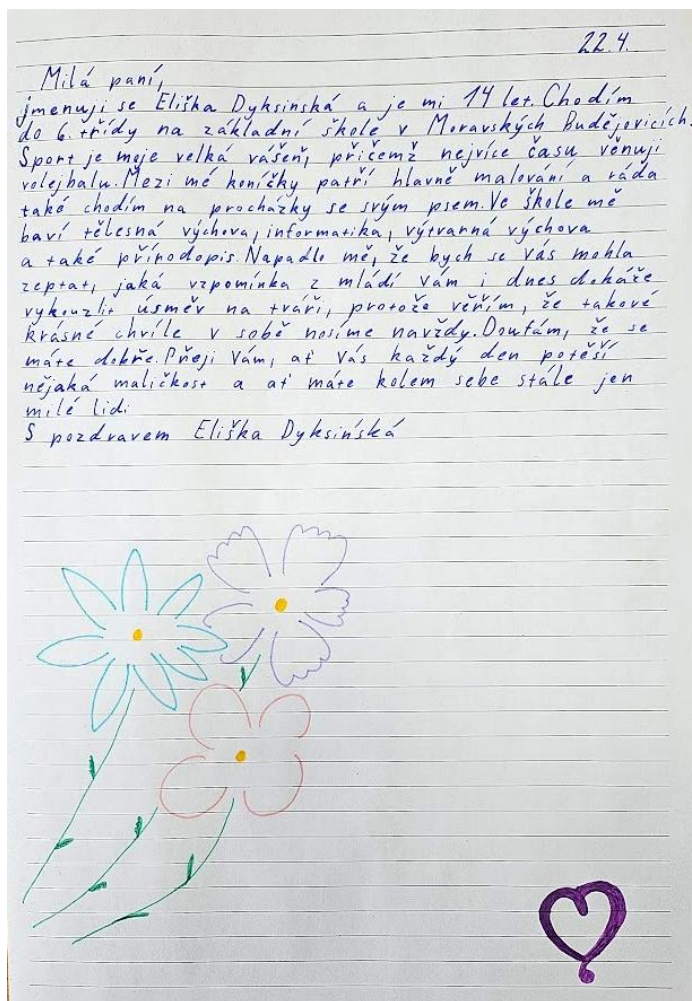 22.4.
Milá paní,
jmenuji se Eliška Dyksinská a je mi 14 let. Chodím
do 6. třídy na základní škole v Moravských Budějovicích.
Sport je moje velká vášeň, přičemž nejvíce času věnuji
volejbalu. Mezi mé koníčky patří hlavně malování a ráda
také chodím na procházky se svým psem. Ve škole mě
baví tělesná výchova, informatika, výtvarná výchova
a také přírodopis. Napadlo mě, že bych se Vás mohla
zeptat, jaká vzpomínka z mládí Vám i dnes dokáže
vykouzlit úsměv na tváři, protože věřím, že takové
krásné chvíle v sobě nosíme navždy. Doufám, že se
máte dobře. Přeji Vám, ať Vás každý den potěší
nějaká maličkost a ať máte kolem sebe stále jen
milé lidi.
S pozdravem Eliška Dyksińská